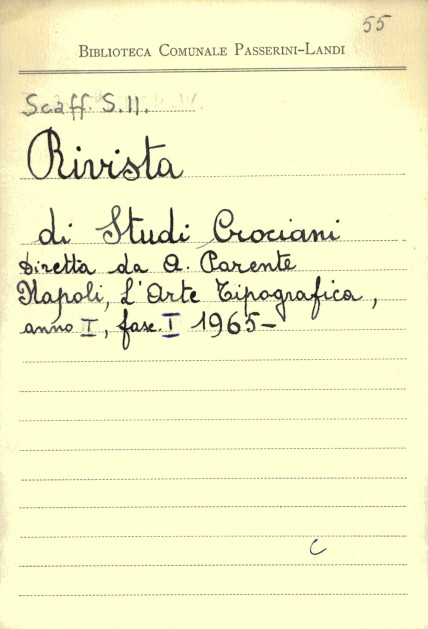 55
BIBLIOTECA COMUNALE PASSERINI-LANDI
Scaff. S.11.
Rivista
di Studi Crociani
Diretta da A. Parente
Napoli, L'Arte Tipografica,
anno I, fasc. I 1965-
C